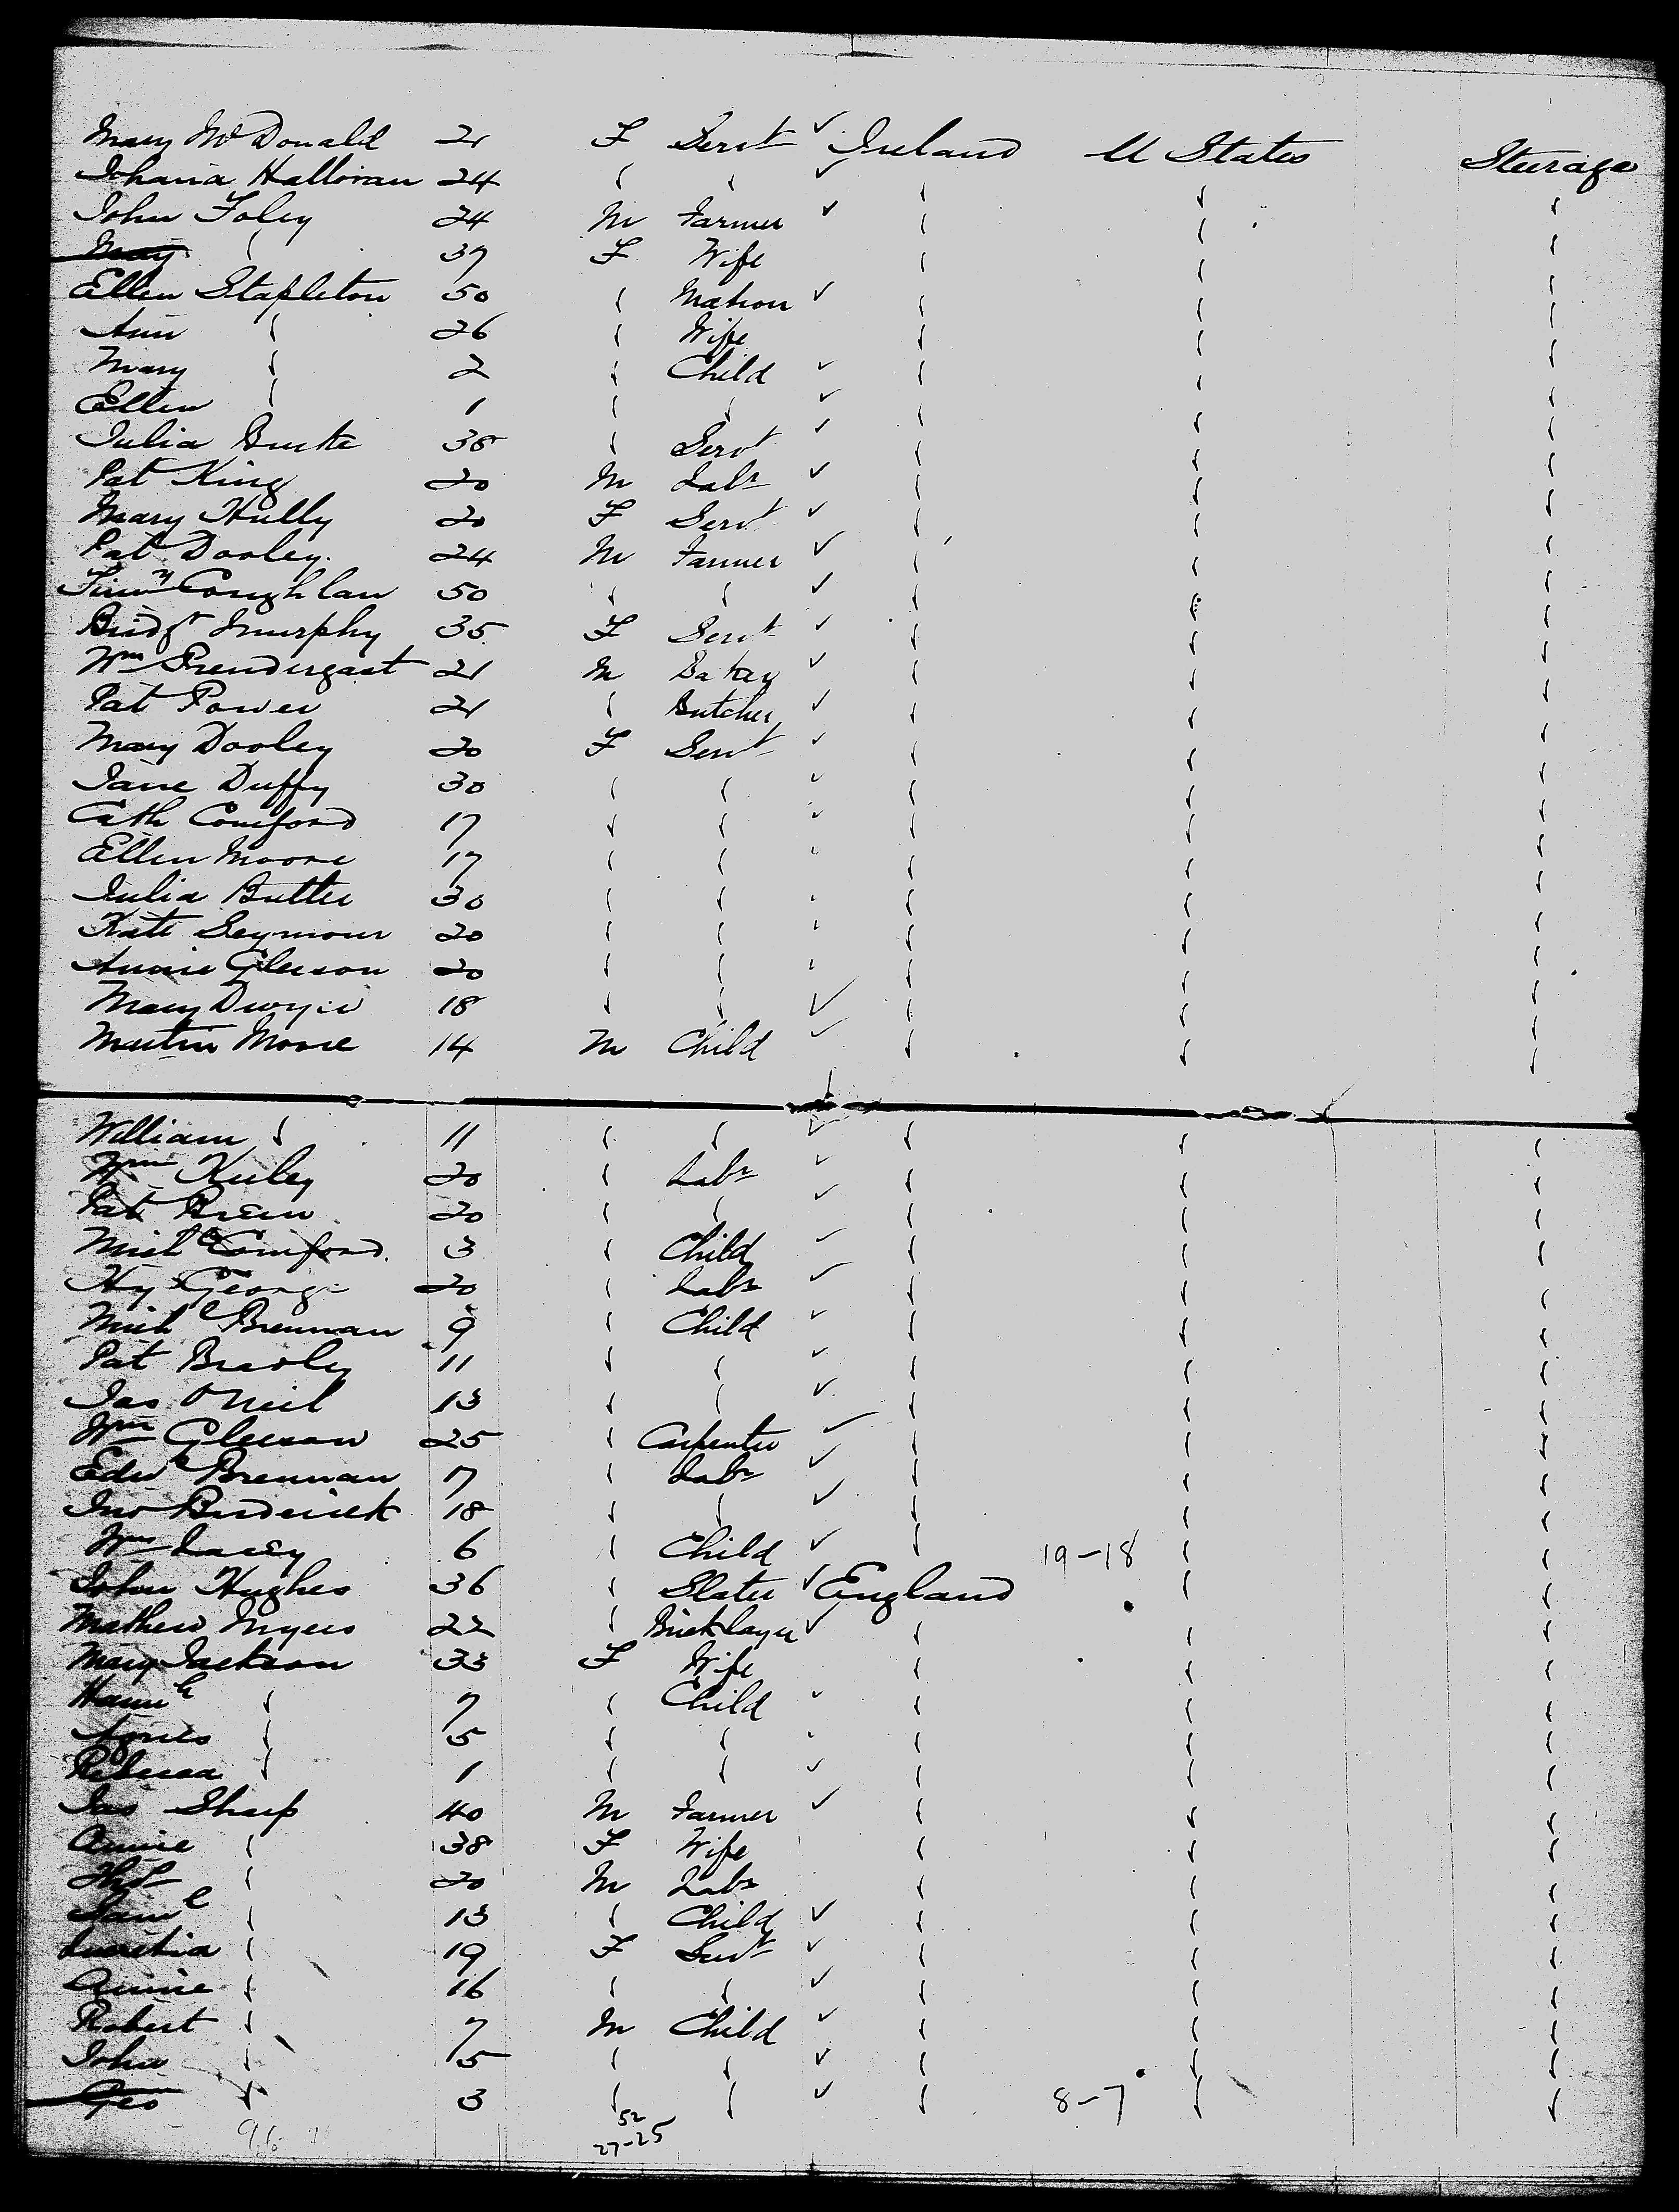 Mary McDonald 21 F Servt ✓ Ireland U States Steerage
Johana Halloran 24 " " ✓ " " "
John Foley 24 M Farmer ✓ " " "
Mary " 37 F Wife " " "
Ellen Stapleton 50 " Matron ✓ " " "
Ann " 26 " Wife " " "
Mary " 2 " Child ✓ " " "
Ellen " 1 " " ✓ " " "
Julia Burke 38 " Servt ✓ " " "
Pat King 20 M Labr ✓ " " "
Mary Hully 20 F Servt ✓ " " "
Pat Dooley 24 M Farmer ✓ " " "
Timy Coughlan 50 " " ✓ " " "
Bridgt Murphy 35 F Servt ✓ " " "
Wm Prendergast 21 M Baker ✓ " " "
Pat Power 21 " Butcher ✓ " " "
Mary Dooley 20 F Servt ✓ " " "
Jane Duffy 30 " " ✓ " " "
Cath Comford 17 " " ✓ " " "
Ellen Moore 17 " " " " "
Julia Butler 30 " " " " "
Kate Seymour 20 " " " " "
Annie Gleeson 20 " " " " "
Mary Dwyer 18 " " ✓ " " "
Martin Moore 14 M Child ✓ " " "
William " 11 " " ✓ " " "
Wm Keiley 20 " Labr ✓ " " "
Pat Brien 20 " " ✓ " " "
Michl Comford 3 " Child ✓ " " "
Hy George 20 " Labr ✓ " " "
Michl Brennan 9 " Child ✓ " " "
Pat Braoley 11 " " ✓ " " "
Jas O'Neil 13 " " ✓ " " "
Wm Gleeson 25 " Carpenter ✓ " " "
Edwd Brennan 17 " Labr ✓ " " "
Jno Broderick 18 " " ✓ " " "
Wm Lacey 6 " Child ✓ " 19-18 " "
John Hughes 36 " Slater ✓ England " "
Mathew Myers 22 " Bricklayer ✓ " " "
Mary Jackson 33 F Wife " " "
Hannh " 7 " Child ✓ " " "
Agnes " 5 " " " " "
Rebecca " 1 " " ✓ " " "
Jas Sharp 40 M Farmer ✓ " " "
Annie " 38 F Wife " " "
Thos " 20 M Labr " " "
Saml " 13 " Child ✓ " " "
Lucretia " 19 F Servt ✓ " " "
Annie " 16 " " ✓ " " "
Robert " 7 M Child ✓ " " "
John " 5 " " ✓ " " "
Geo " 3 " " ✓ " 8-7 " "
52
27-25